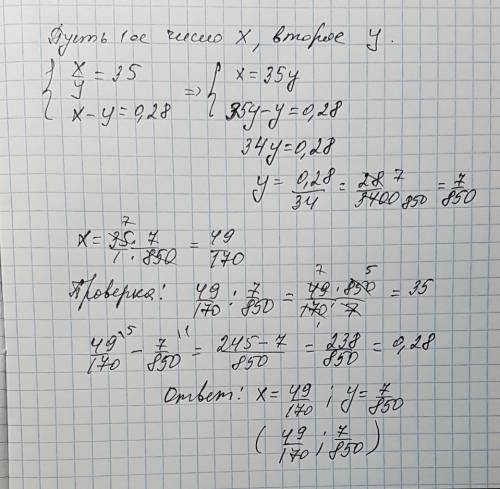 Пусть 1ое число x, второе y.
{ x/y = 35 => { x = 35y
x - y = 0,28 35y - y = 0,28
34y = 0,28
y = 0,28/34 = 28/3400 7/850 = 7/850
x = 35/1 · 7/850 7 = 49/170
Проверка: 49/170 : 7/850 = 49 · 850/170 · 7 7 5 1 = 35
49/170 \5 - 7/850 \1 = 245 - 7/850 = 238/850 = 0,28
Ответ: x = 49/170 ; y = 7/850
( 49/170 ; 7/850 )